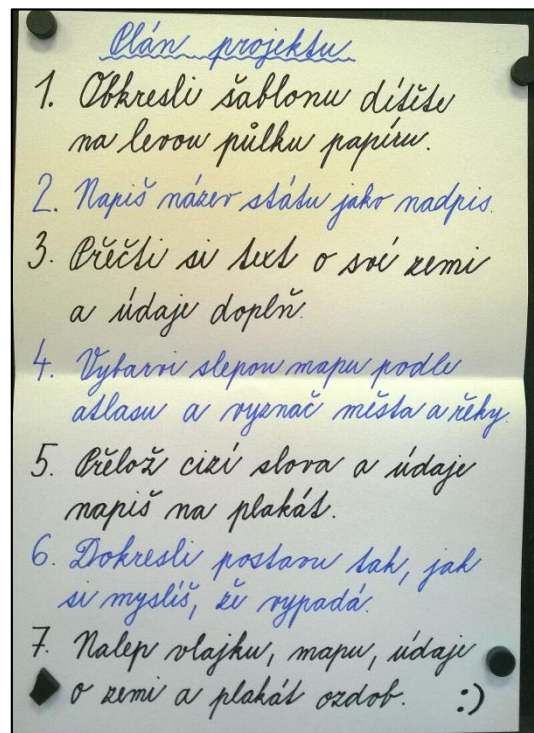 Plán projektu
1. Obkresli šablonu dítěte
na levou půlku papíru.
2. Napiš název státu jako nadpis.
3. Přečti si text o své zemi
a údaje doplň.
4. Vybarvi slepou mapu podle
atlasu a vyznač města a řeky.
5. Přelož cizí slova a údaje
napiš na plakát.
6. Dokresli postavu tak, jak
si myslíš, že vypadá.
7. Nalep vlajku, mapu, údaje
o zemi a plakát ozdob. :)